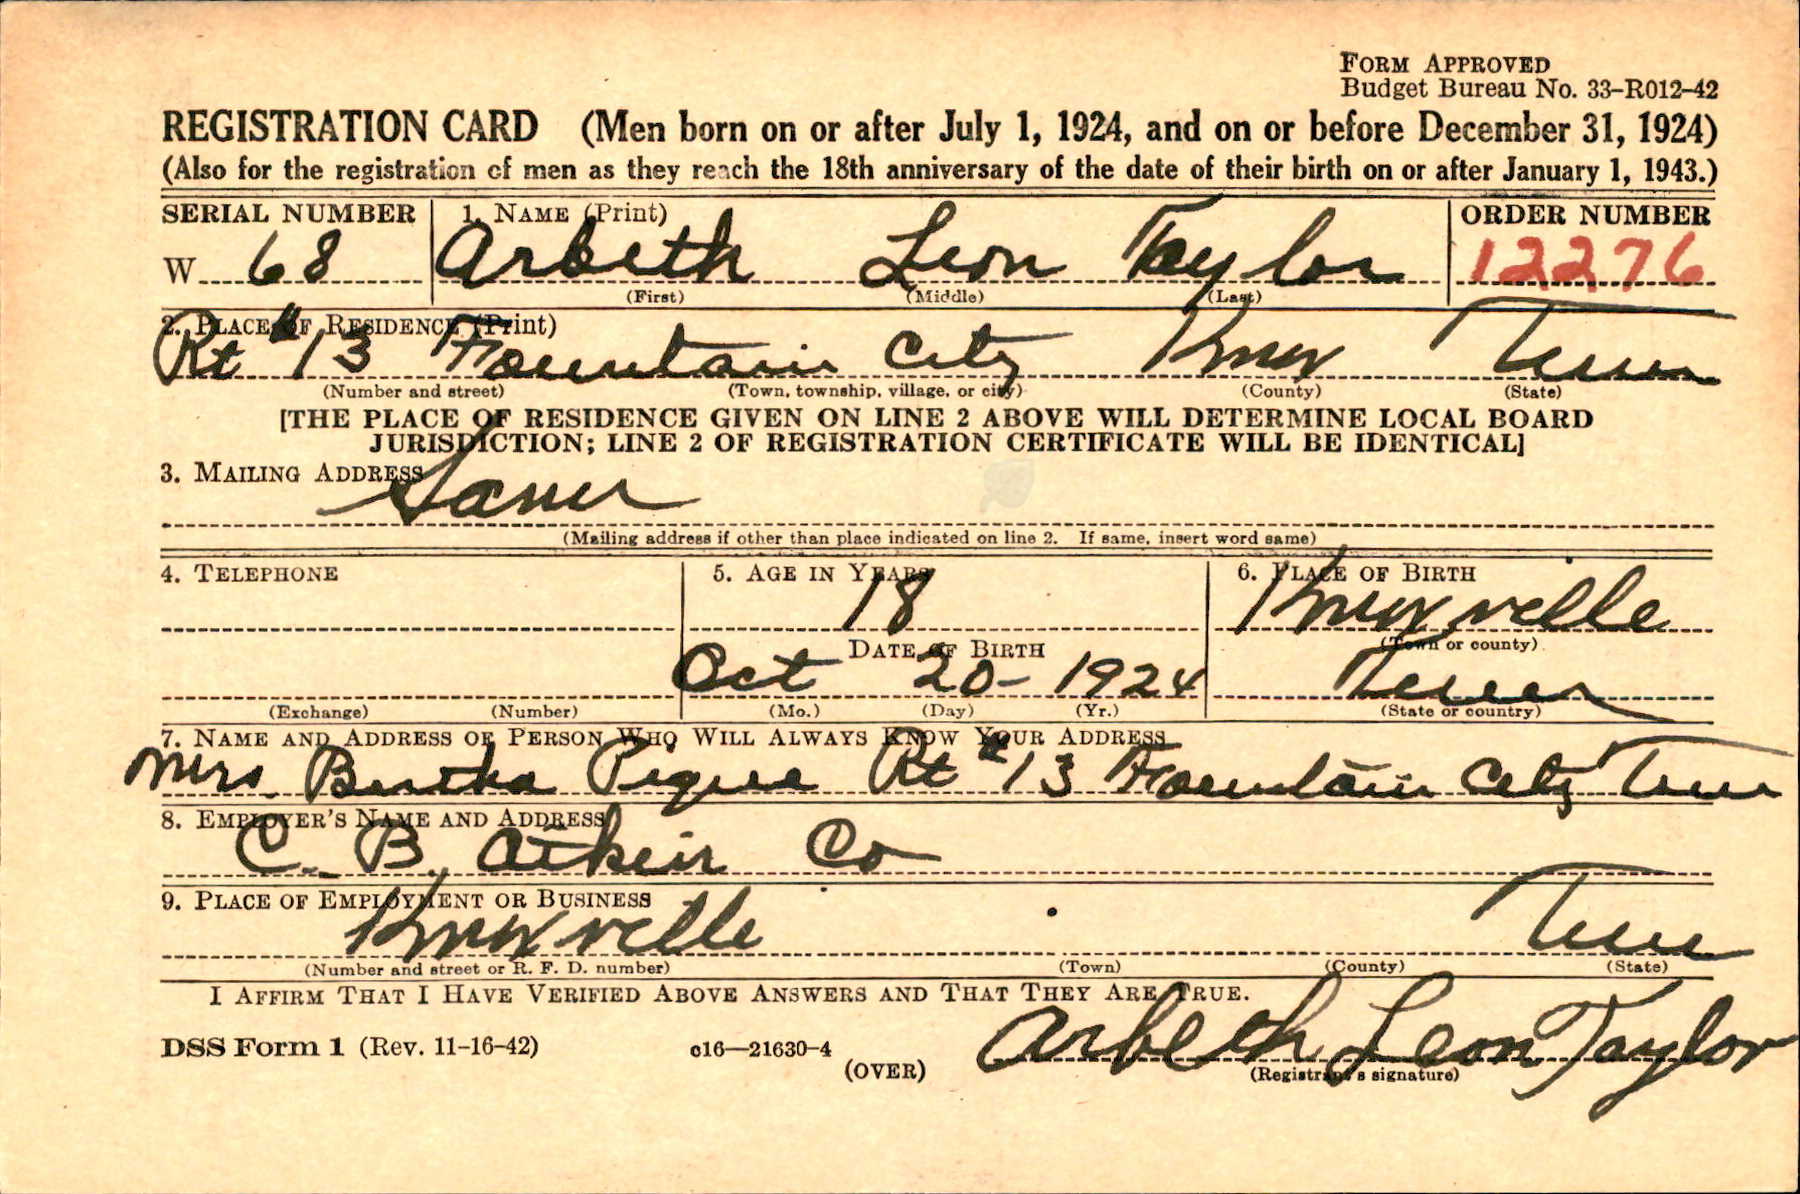 FORM APPROVED
Budget Bureau No. 33–R012–42
REGISTRATION CARD (Men born on or after July 1, 1924, and on or before December 31, 1924)
(Also for the registration of men as they reach the 18th anniversary of the date of their birth on or after January 1, 1943.)
SERIAL NUMBER 1. NAME (Print) ORDER NUMBER
W 68 Arbeth Leon Taylor 12276
(First) (Middle) (Last)
2. PLACE OF RESIDENCE (Print)
Rt #13 Fountain City Knox Tenn
(Number and street) (Town, township, village, or city) (County) (State)
[THE PLACE OF RESIDENCE GIVEN ON LINE 2 ABOVE WILL DETERMINE LOCAL BOARD
JURISDICTION; LINE 2 OF REGISTRATION CERTIFICATE WILL BE IDENTICAL]
3. MAILING ADDRESS
Same
(Mailing address if other than place indicated on line 2. If same, insert word same)
4. TELEPHONE 5. AGE IN YEARS 6. PLACE OF BIRTH
18 Knoxville
DATE OF BIRTH (Town or county)
Oct 20 – 1924 Tenn
(Exchange) (Number) (Mo.) (Day) (Yr.) (State or country)
7. NAME AND ADDRESS OF PERSON WHO WILL ALWAYS KNOW YOUR ADDRESS
Mrs. Bertha Rt #13 Fountain City Tenn
8. EMPLOYER'S NAME AND ADDRESS
C. B. Atkin Co
9. PLACE OF EMPLOYMENT OR BUSINESS
Knoxville Tenn
(Number and street or R. F. D. number) (Town) (County) (State)
I AFFIRM THAT I HAVE VERIFIED ABOVE ANSWERS AND THAT THEY ARE TRUE.
DSS Form 1 (Rev. 11–16–42) c16—21630-4 Arbeth Leon Taylor
(OVER) (Registrant's signature)